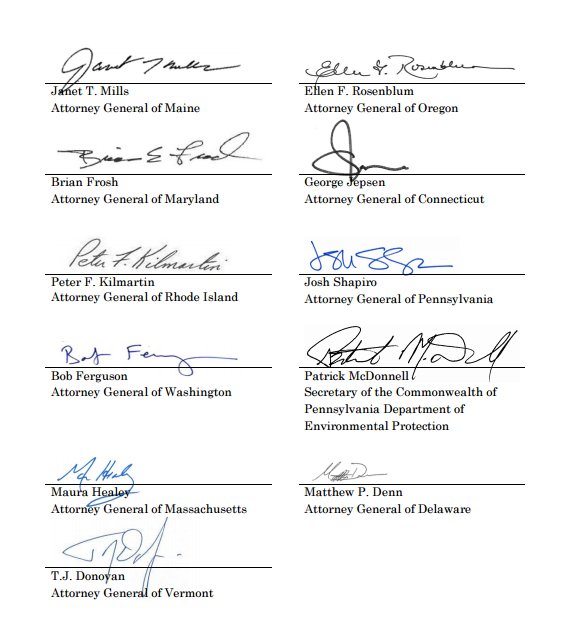 Janet T. Mills
Janet T. Mills
Attorney General of Maine
Ellen F. Rosenblum
Ellen F. Rosenblum
Attorney General of Oregon
Brian E Frosh
Brian Frosh
Attorney General of Maryland
George Jepsen
Attorney General of Connecticut
Peter F. Kilmartin
Peter F. Kilmartin
Attorney General of Rhode Island
Josh Shapiro
Attorney General of Pennsylvania
Bob Ferguson
Attorney General of Washington
Patrick McDonnell
Secretary of the Commonwealth of
Pennsylvania Department of
Environmental Protection
Maura Healey
Attorney General of Massachusetts
Matthew P. Denn
Attorney General of Delaware
T.J. Donovan
Attorney General of Vermont